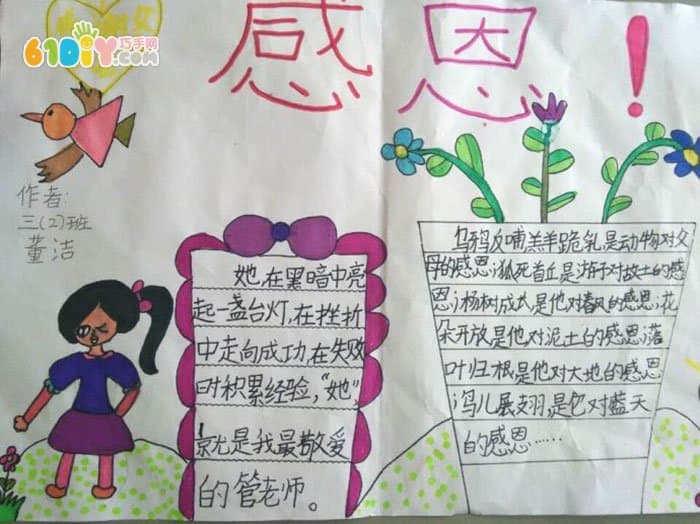 61DIY巧手网
.com
感恩!
作者:
三(2)班
董洁
她,在黑暗中亮
起一盏台灯,在挫折
中走向成功,在失败
时积累经验,“她”,
就是我最敬爱
的管老师。
乌鸦反哺羔羊跪乳是动物对父
母的感恩;狐死首丘是游子对故土的感
恩;杨树成大是他对春风的感恩;花
朵开放是他对泥土的感恩;落
叶归根是他对大地的感恩
;鸟儿展翅是它对蓝天
的感恩……